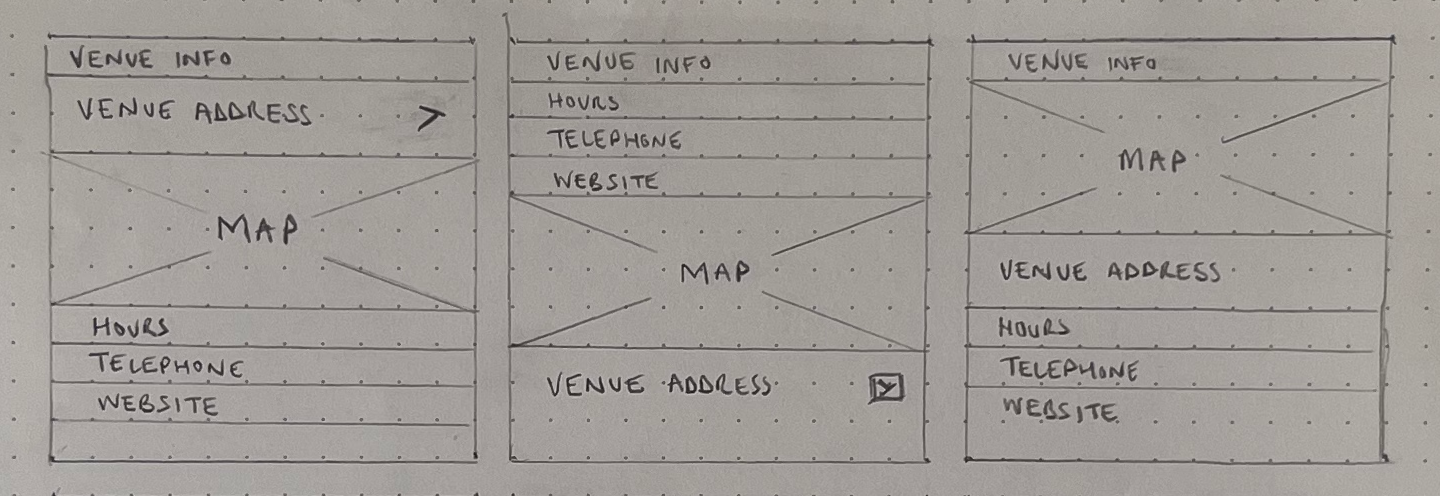 VENUE INFO
VENUE ADDRESS >
MAP
HOURS
TELEPHONE
WEBSITE
VENUE INFO
HOURS
TELEPHONE
WEBSITE
MAP
VENUE ADDRESS
VENUE INFO
MAP
VENUE ADDRESS
HOURS
TELEPHONE
WEBSITE